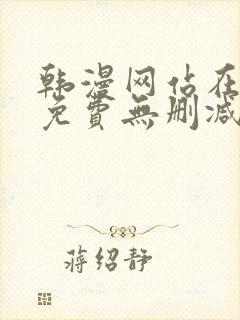 韩漫网站在
免費無删减
蒋绍静